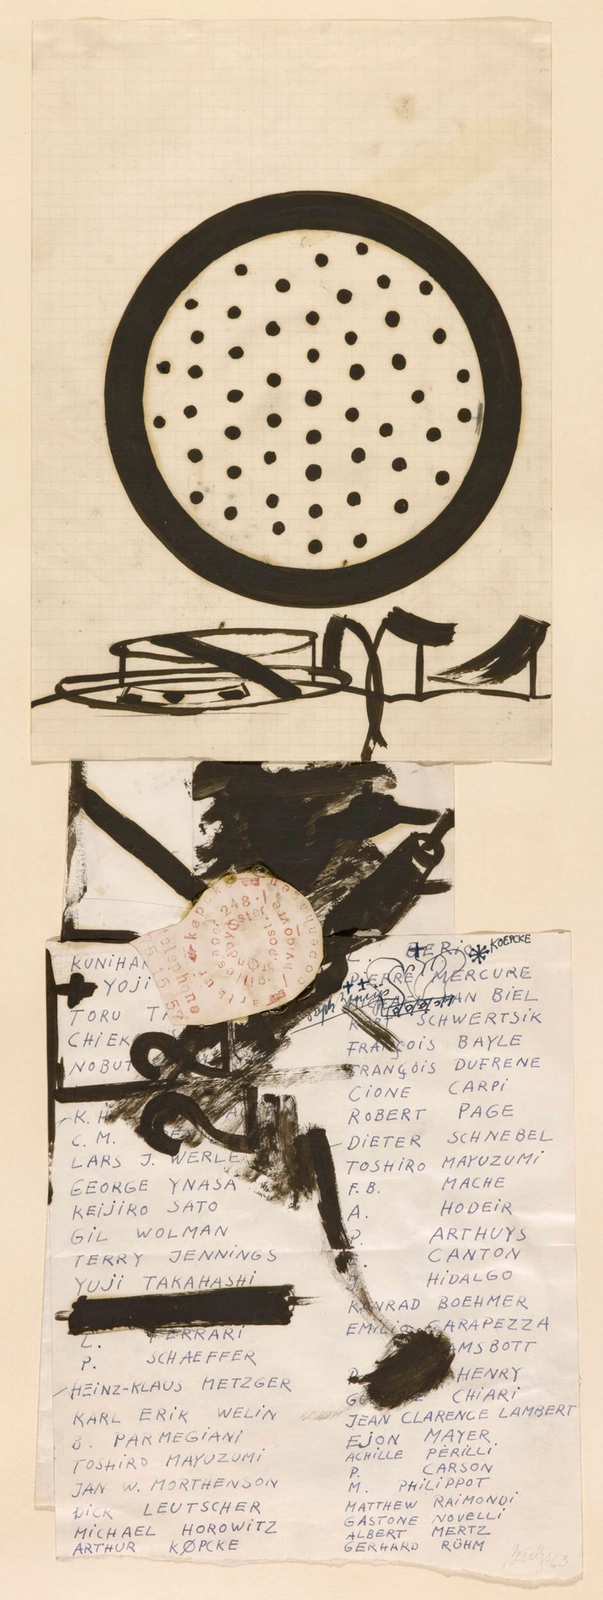 KUNIHA
YOJI
TORU
CHIEK
NOBUT
K. H
C. M.
LARS J. WERLE
GEORGE YNASA
KEIJIRO SATO
GIL WOLMAN
TERRY JENNINGS
YUJI TAKAHASHI
L. FERRARI
P. SCHAEFFER
HEINZ-KLAUS METZGER
KARL ERIK WELIN
B. PARMEGIANI
TOSHIRO MAYUZUMI
JAN W. MORTHENSON
DICK LEUTSCHER
MICHAEL HOROWITZ
ARTHUR KØPCKE
KOEPCKE
PIERRE MERCURE
AN BIEL
SCHWERTSIK
FRANÇOIS BAYLE
FRANÇOIS DUFRENE
CIONE CARPI
ROBERT PAGE
DIETER SCHNEBEL
TOSHIRO MAYUZUMI
F.B. MACHE
A. HODEIR
P. ARTHUYS
CANTON
HIDALGO
KONRAD BOEHMER
EMILIO GARAPEZZA
AMSBOTT
HENRY
CHIARI
JEAN CLARENCE LAMBERT
EJON MAYER
ACHILLE PERILLI
P. CARSON
M. PHILIPPOT
MATTHEW RAIMONDI
GASTONE NOVELLI
ALBERT MERTZ
GERHARD RÜHM